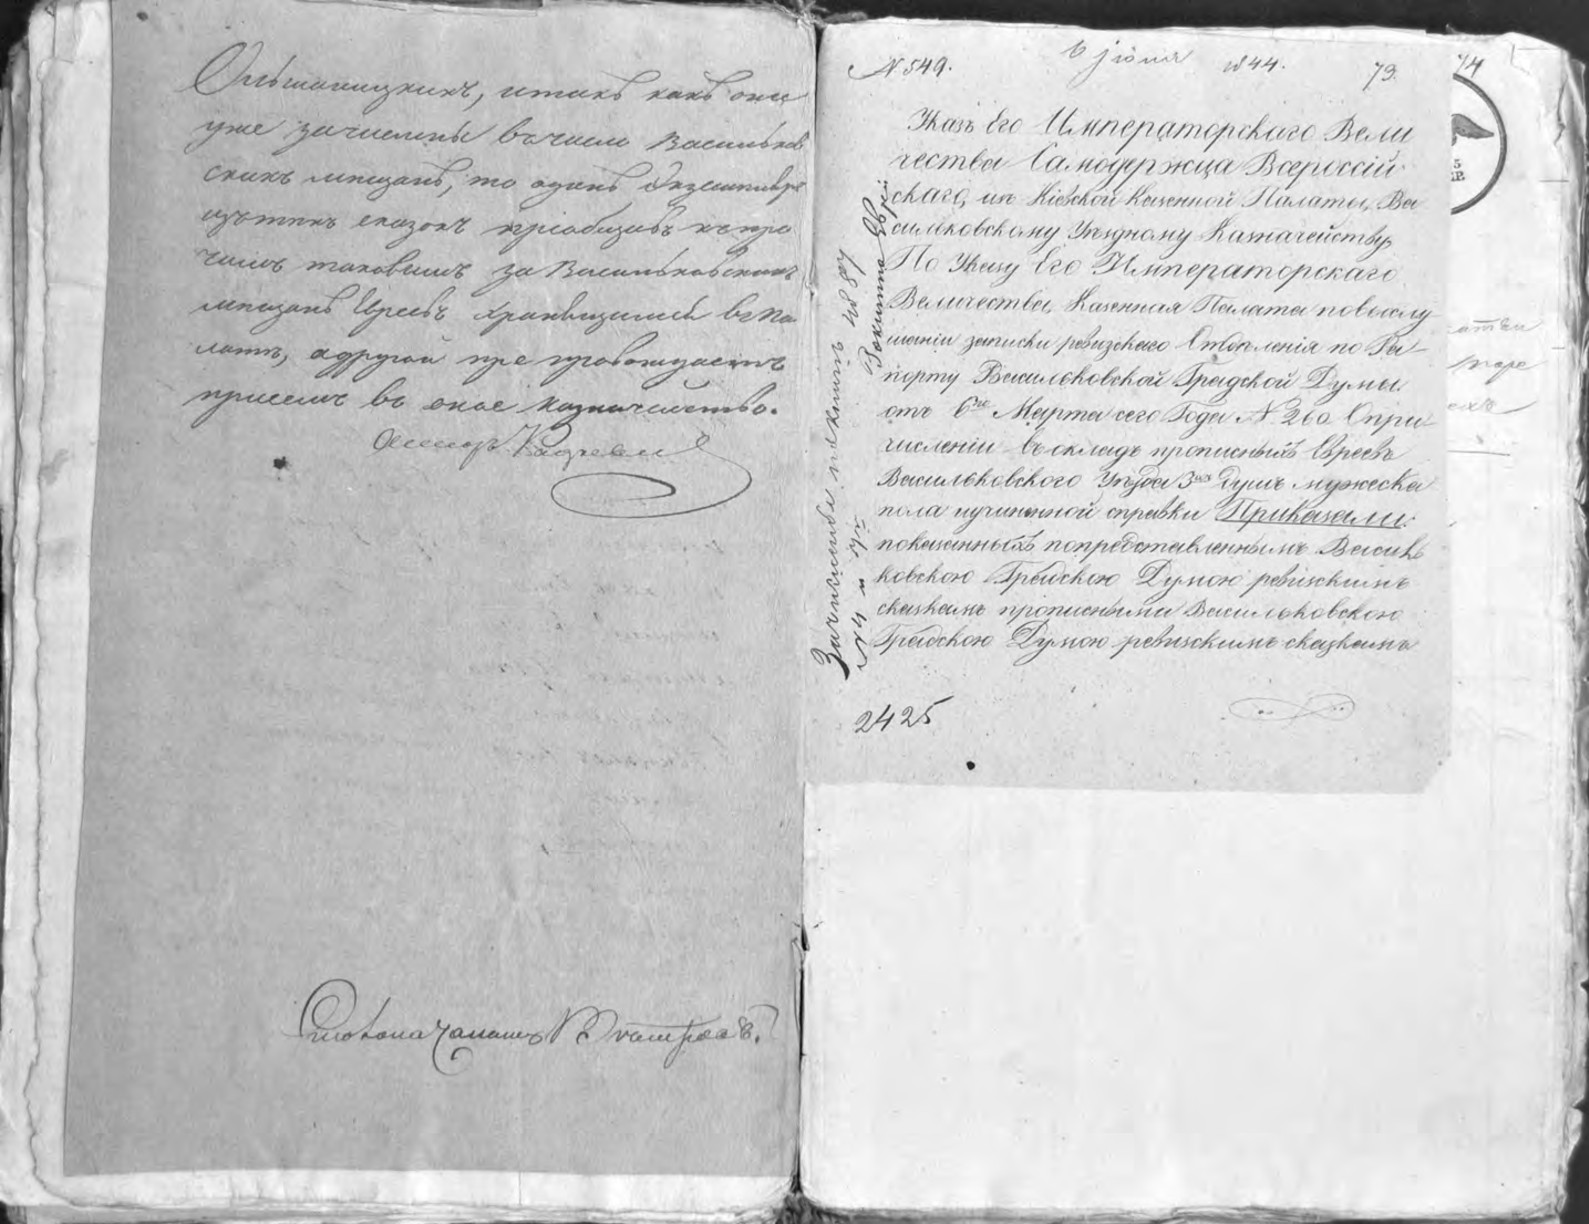 Ольшаницкихъ, итакъ какъ они
уже зачислены въ число Васильков
скихъ мещанъ, то одинъ Экземпляръ
изътехъ сказокъ пріобщивъ къ про
чимъ таковымъ за Васильковскихъ
мещанъ Евреевъ хранящимся въ Па
лате, адругой при
присемъ въ оное казначейство.
Столоначальникъ
№ 549.
6 іюня 1844.
73.
74
Указъ Его Императорскаго Вели
чества Самодержца Всероссій
скаго, изъ Кіевской Казенной Палаты, Ва
сильковскому Уѣздному Казначейству,
По Указу Его Императорскаго
Величества, Казенная Палата повыслу
шаніи записки ревизскаго Отдѣленія по Ра
порту Васильковской Градской Думы
отъ 6го Марта сего Года № 260 Опри
численіи въ окладъ прописныхъ Евреевъ
Васильковского Уѣзда 3хъ душъ мужеска
пола иучиненной справки Приказали:
показанныхъ попредставленнымъ Василь
ковскою Градскою Думою ревизскимъ
сказкамъ прописными Васильковскою
Градскою Думою ревизскимъ сказкамъ
2425